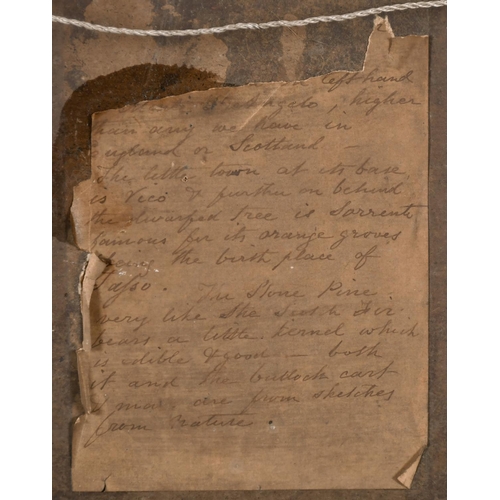 left hand
Angelo, higher
than any we have in
England or Scotland —
The little town at its base
is Vico & further on behind
the dwarfed Tree is Sorrento
famous for its orange groves
being the birth place of
Tasso. The Stone Pine
very like the Scotch Fir
bears a little kernel which
is edible & good — both
it and the bullock cart
& man, are from sketches
from Nature.